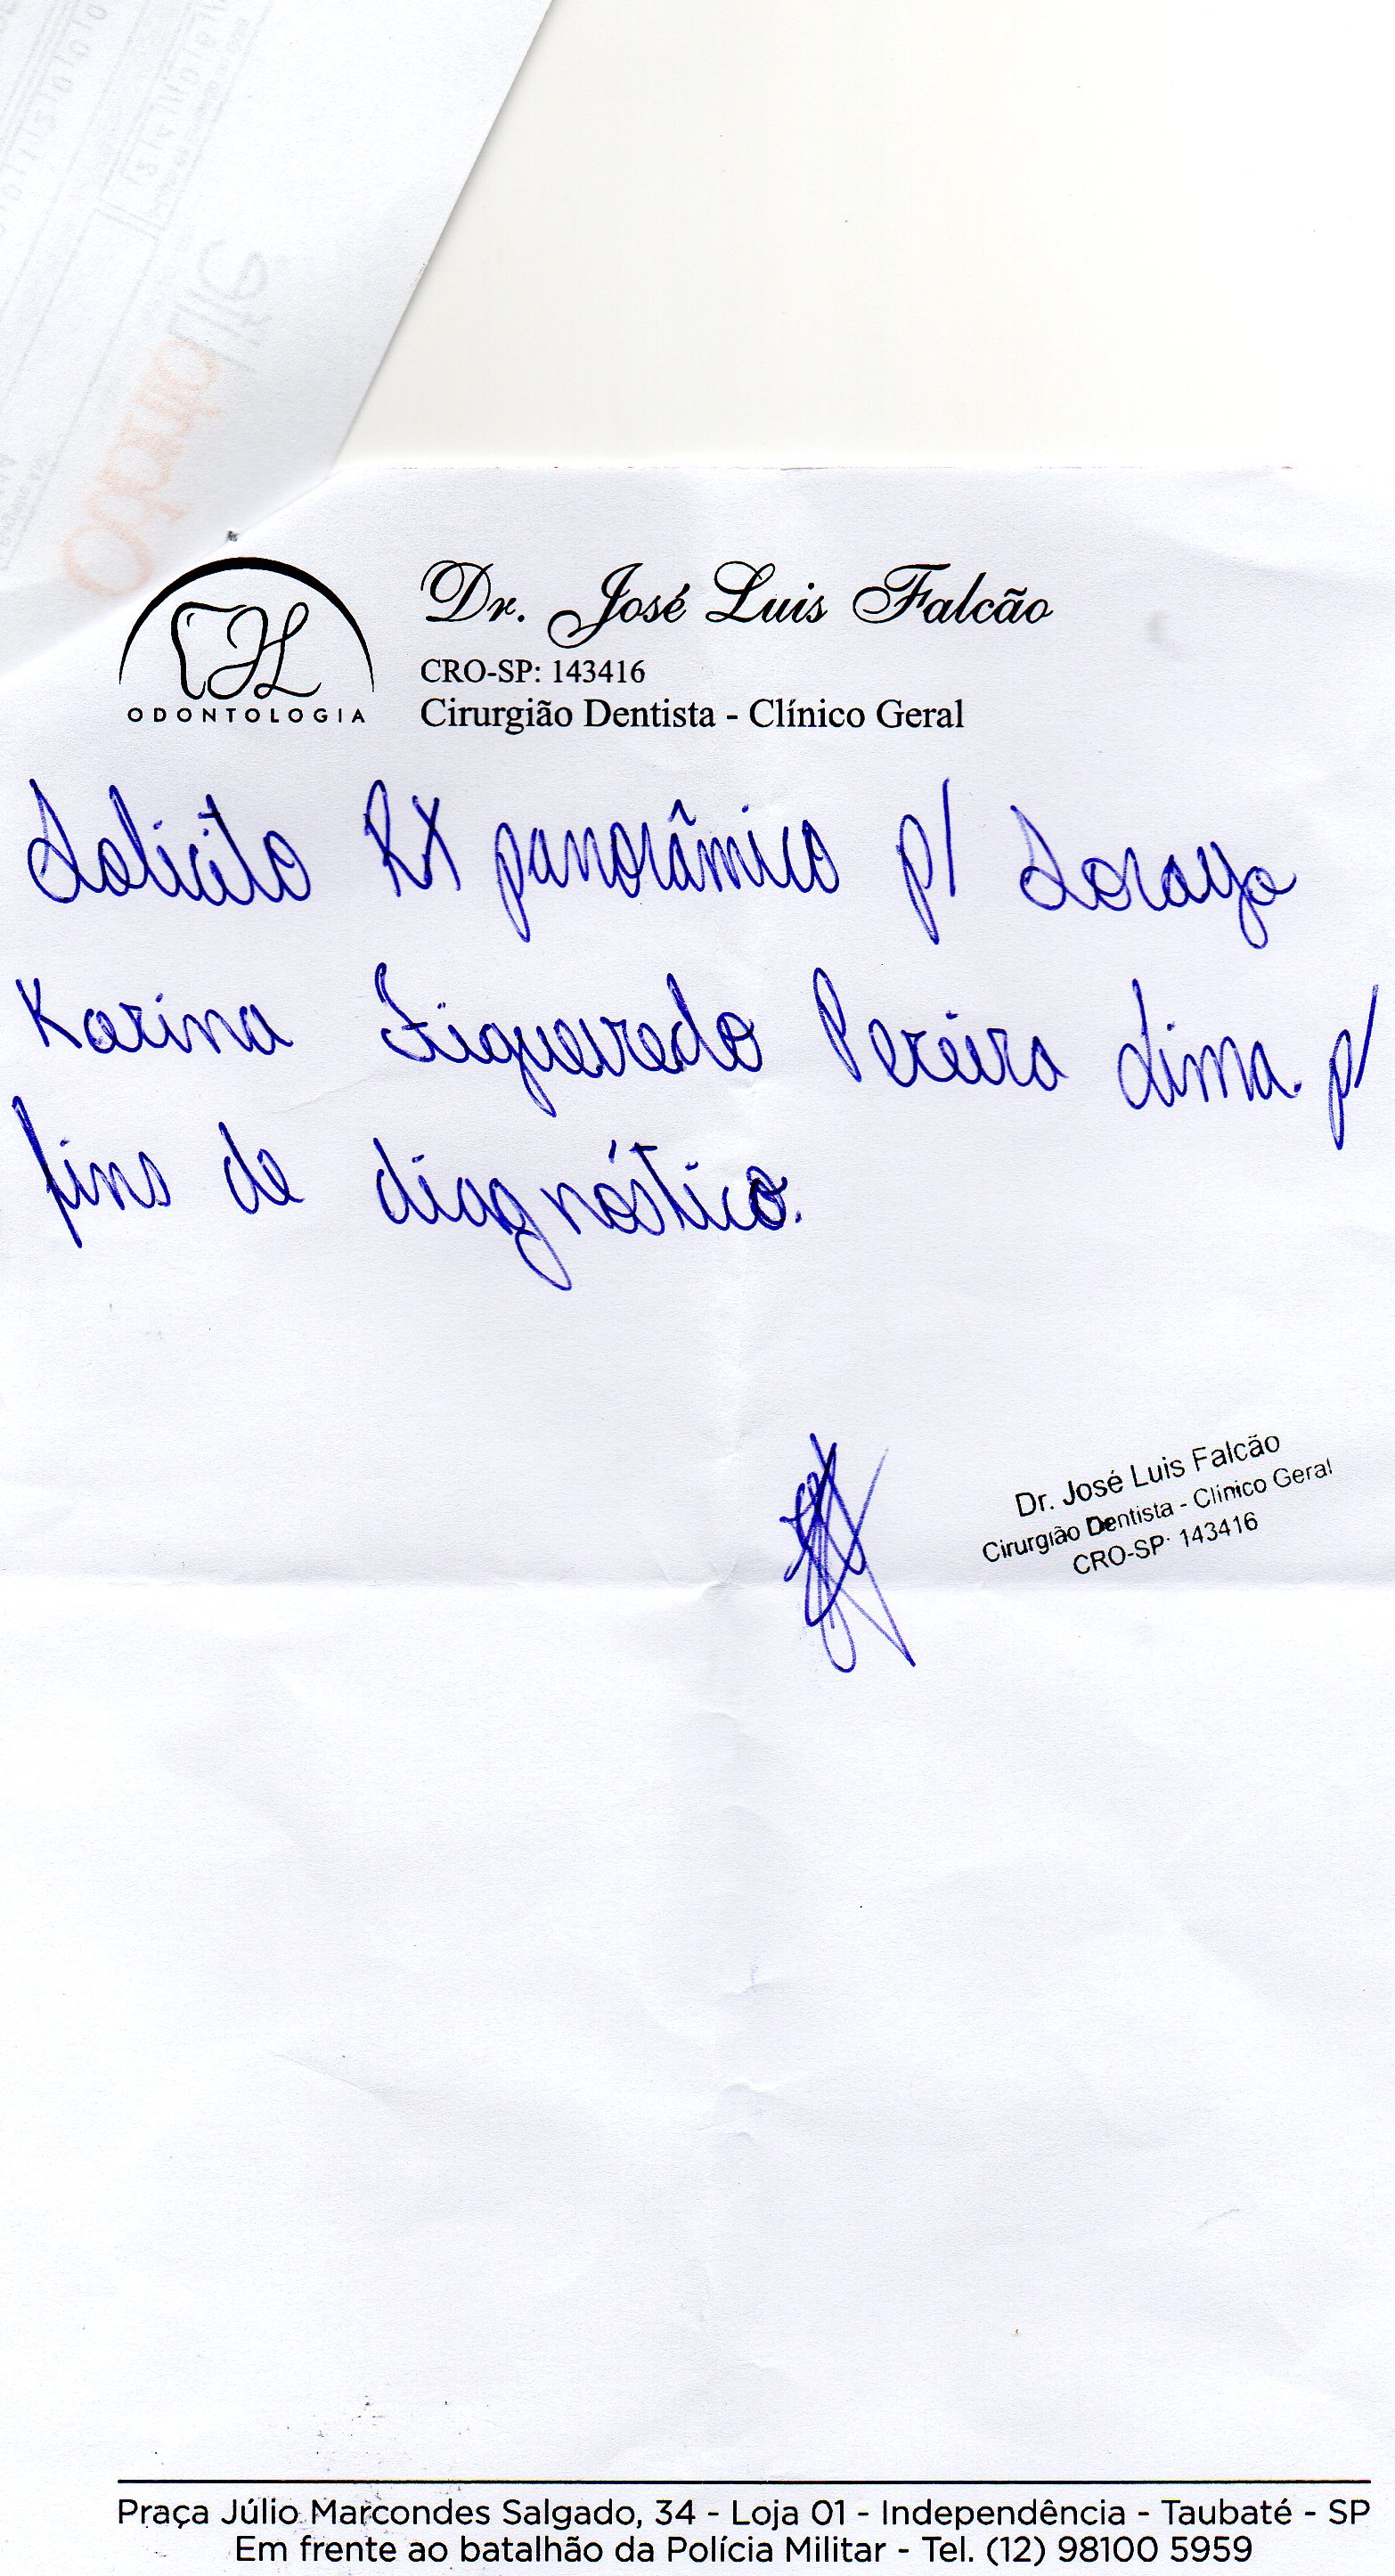 Dr. José Luis Falcão
CRO-SP: 143416
Cirurgião Dentista - Clínico Geral
JL
ODONTOLOGIA
Solicito RX panorâmico p/ Soraya
Karina Figueredo Pereira Lima. p/
fins de diagnóstico.
Dr. José Luis Falcão
Cirurgião Dentista - Clínico Geral
CRO-SP: 143416
Praça Júlio Marcondes Salgado, 34 - Loja 01 - Independência - Taubaté - SP
Em frente ao batalhão da Polícia Militar - Tel. (12) 98100 5959